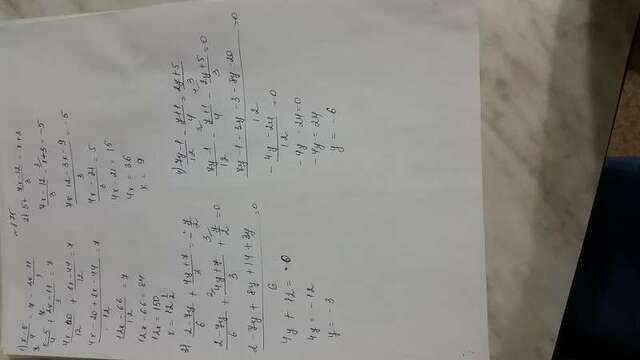 № 875
1) x-5/4 = 7 - 2x-11/3
x-5/4 + 2x-11/3 = 7
4x-20/12 + 8x-44/12 = 7
4x-20+8x-44/12 = 7
12x-66/12 = 7
12x-66 = 84
12x = 150
x = 12 1/2
2) 5 + 7x-12/3 = x+3
7x-12/3 - x+3 = -5
7x-12-3x-9/3 = -5
4x-21/3 = 5
4x-21 = 15
4x = 36
x = 9
3) 2-7y/6 + 4y+7/3 = - y/2
2-7y/6 + 4y+7/3 + y/2 = 0
2-7y+8y+14+3y/6 = 0
4y + 12 = 0
4y = -12
y = -3
4) 7y-1/12 - y+1/4 = 2y+5/3
7y-1/12 - y+1/4 - 2y+5/3 = 0
7y-1-3y-3-8y-20/12 = 0
- 4y-24/12 = 0
-4y-24=0
-4y = 24
y = -6